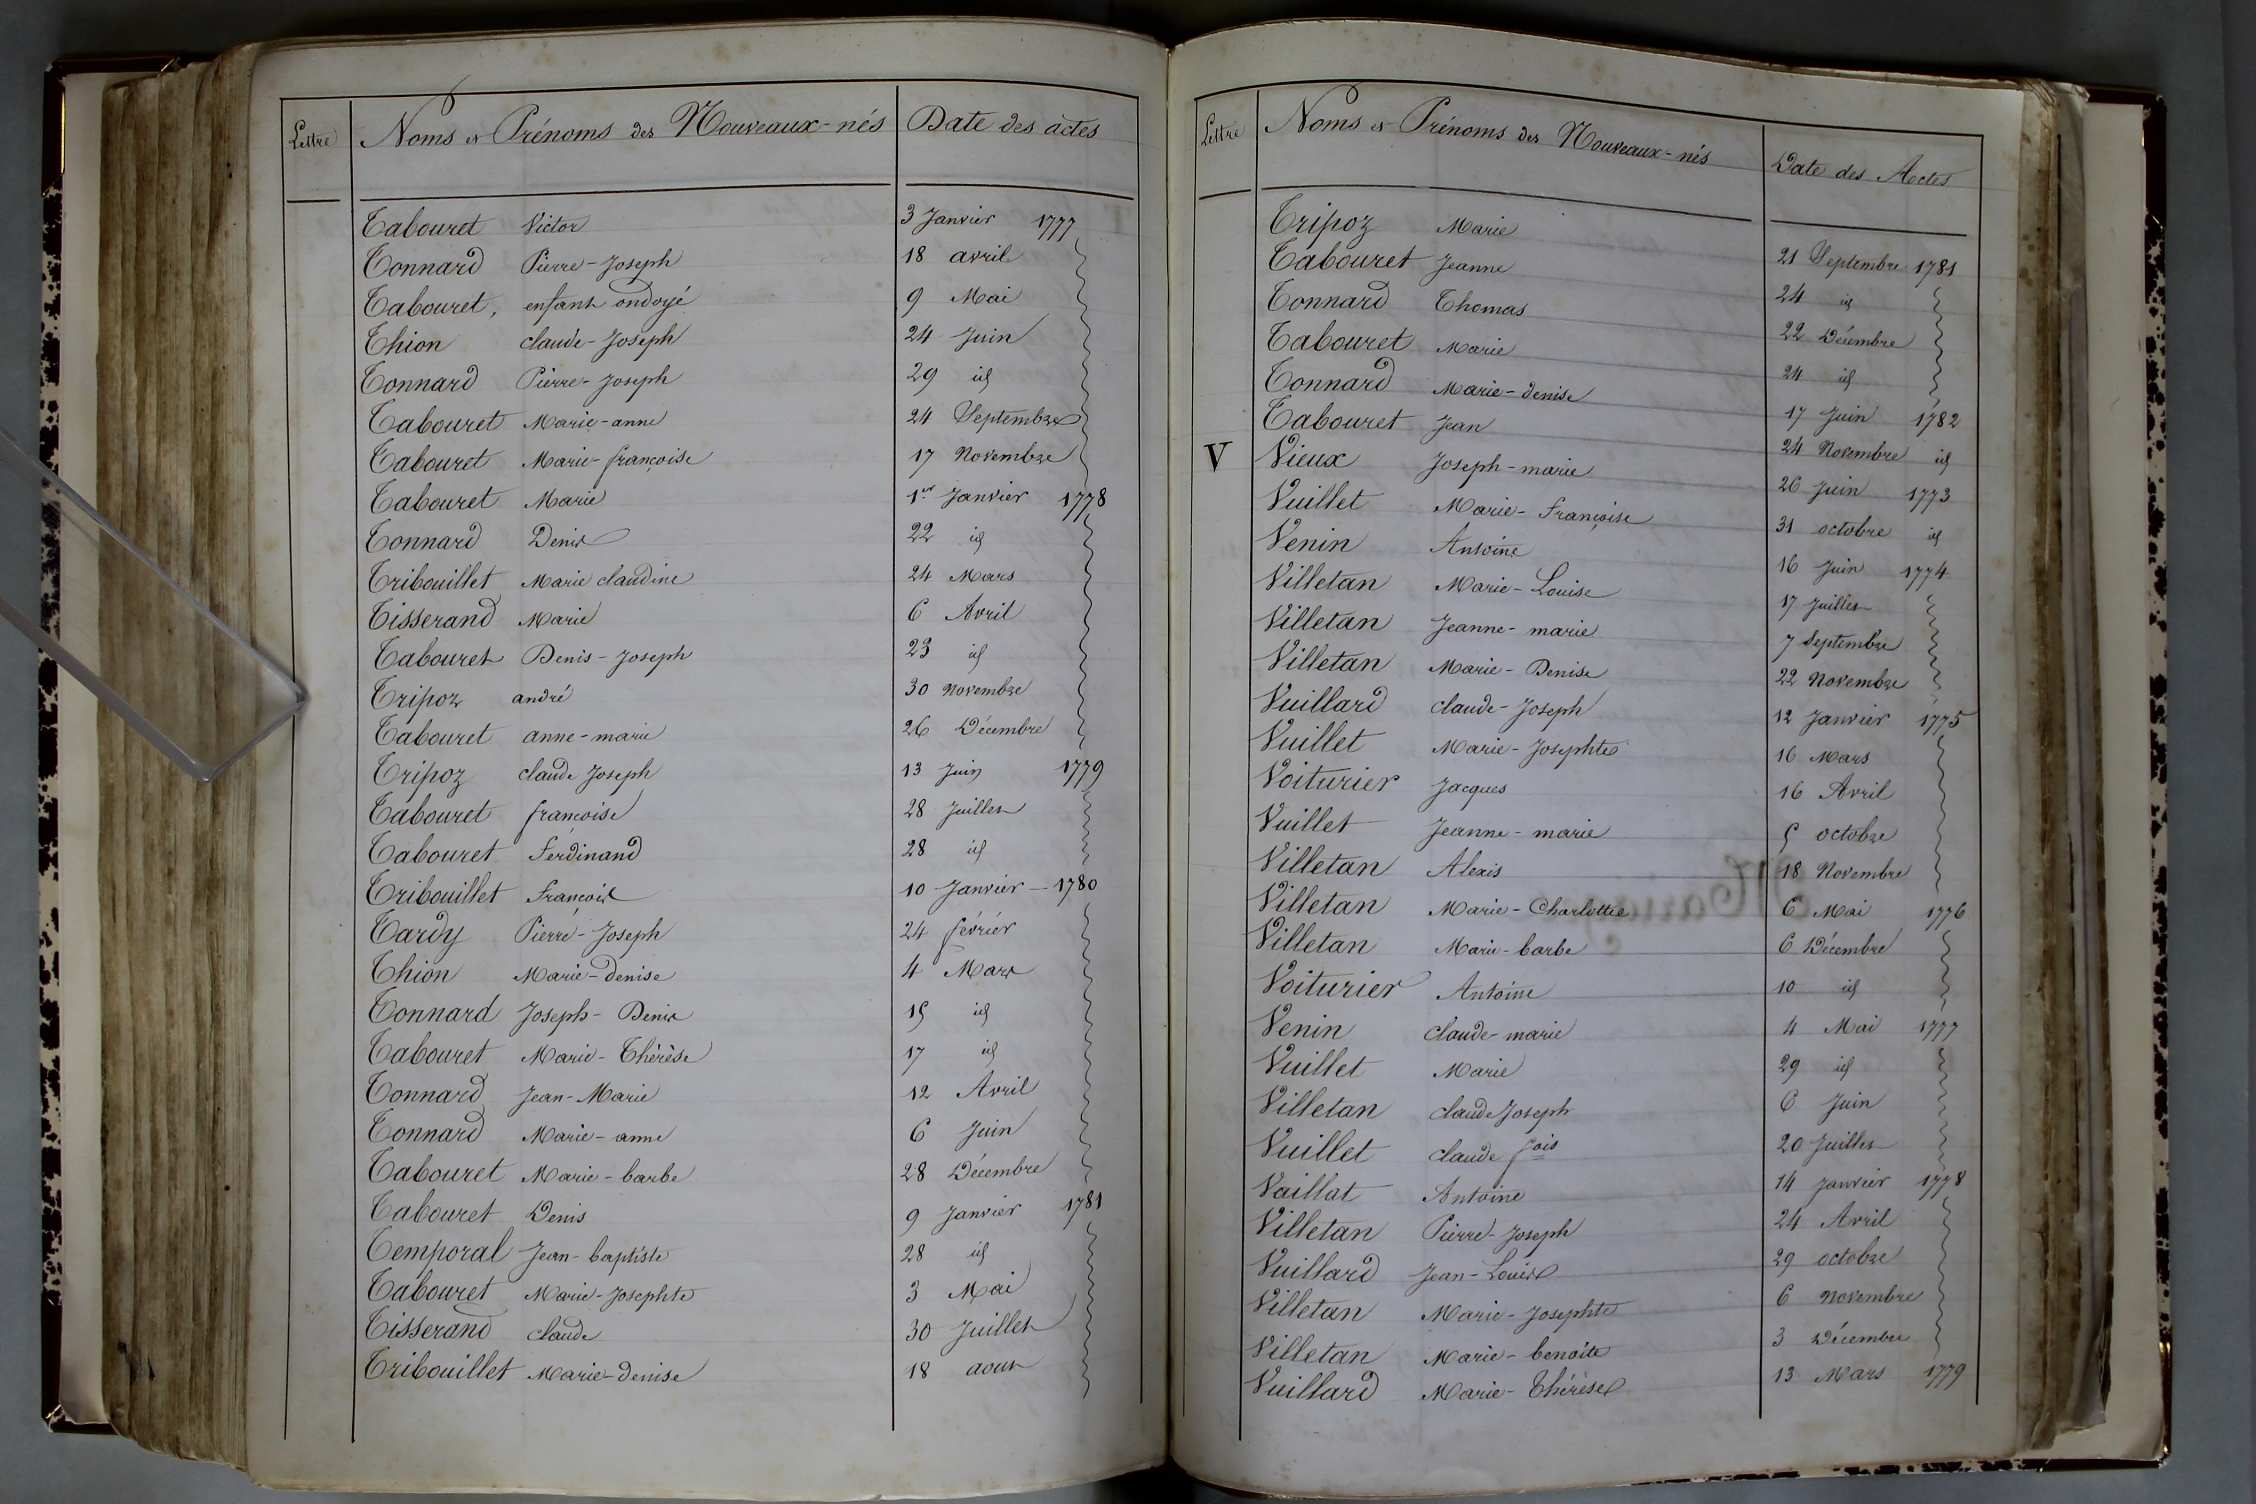 Lettre Noms et Prénoms des Nouveaux-nés Date des actes
Tabouret Victor 3 Janvier 1777
Tonnard Pierre-Joseph 18 avril
Tabouret, enfant ondoyé 9 Mai
Thion claude-Joseph 24 Juin
Tonnard Pierre-Joseph 29 id
Tabouret Marie-anne 24 Septembre
Tabouret Marie-françoise 17 Novembre
Tabouret Marie 1er Janvier 1778
Tonnard Denis 22 id
Tribouillet Marie claudine 24 Mars
Tisserand Marie 6 Avril
Tabouret Denis-Joseph 23 id
Tripoz andré 30 Novembre
Tabouret anne-marie 26 Décembre
Tripoz claude Joseph 13 Juin 1779
Tabouret françoise 28 Juillet
Tabouret Ferdinand 28 id
Tribouillet François 10 Janvier - 1780
Tardy Pierre-Joseph 24 février
Thion Marie-denise 4 Mars
Tonnard Joseph-Denis 15 id
Tabouret Marie-Thérèse 17 id
Tonnard Jean-Marie 12 Avril
Tonnard Marie-anne 6 Juin
Tabouret Marie-barbe 28 Décembre
Tabouret Denis 9 Janvier 1781
Temporal Jean-baptiste 28 id
Tabouret Marie-Josephte 3 Mai
Tisserand claude 30 Juillet
Tribouillet Marie-denise 18 aout
Lettre Noms et Prénoms des Nouveaux-nés Date des Actes
Tripoz Marie 21 Septembre 1781
Tabouret Jeanne 24 id
Tonnard Thomas 22 Décembre
Tabouret Marie 24 id
Tonnard Marie-denise 17 Juin 1782
Tabouret Jean 24 Novembre id
V Vieux Joseph-marie 26 Juin 1773
Vuillet Marie-Françoise 31 octobre id
Venin Antoine 16 Juin 1774
Villetan Marie-Louise 17 Juillet
Villetan Jeanne-marie 7 Septembre
Villetan Marie-Denise 22 Novembre
Vuillard claude-Joseph 12 Janvier 1775
Vuillet Marie-Josephte 16 Mars
Voiturier Jacques 16 Avril
Vuillet Jeanne-marie 5 octobre
Villetan Alexis 18 Novembre
Villetan Marie-Charlotte 6 Mai 1776
Villetan Marie-barbe 6 Décembre
Voiturier Antoine 10 id
Venin claude-marie 4 Mai 1777
Vuillet Marie 29 id
Villetan claude Joseph 6 Juin
Vuillet claude fois 20 Juillet
Vaillat Antoine 14 Janvier 1778
Villetan Pierre-Joseph 24 Avril
Vuillard Jean-Louis 29 octobre
Villetan Marie-Josephte 6 Novembre
Villetan Marie-benoite 3 Décembre
Vuillard Marie-Thérèse 13 Mars 1779